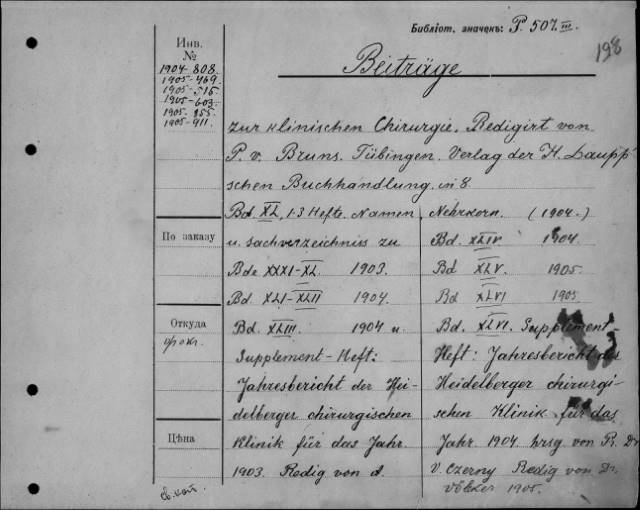 Библіот. значекъ: P. 507 III.
198
Инв.
№
1904-808.
1905-469.
1905-515
1905-603.
1905-855.
1905-911.
Beiträge
zur klinischen Chirurgie. Redigirt von
P. v. Bruns. Tübingen. Verlag der H. Laupp'
schen Buchhandlung. in 8.
Bd. XL, 1-3 Hefte. Namen
u. sachverzeichniss zu
Bde XXXI-XL. 1903.
Bd XLI-XLII 1904.
Bd. XLIII. 1904 u.
Supplement-Heft:
Jahresbericht der Hei-
delberger chirurgischen
Klinik für das Jahr.
1903. Redig von d.
Nehrkorn. (1904.)
Bd. XLIV. 1904.
Bd XLV. 1905
Bd XLVI 1905.
Bd. XLVI. Supplement-
Heft: Jahresbericht des
Heidelberger chirurgi-
schen Klinik für das
Jahr. 1904 hrsg von Pr. Dr
V. Czerny Redig von Dr.
Völker 1905.
По заказу
Откуда
Цѣна